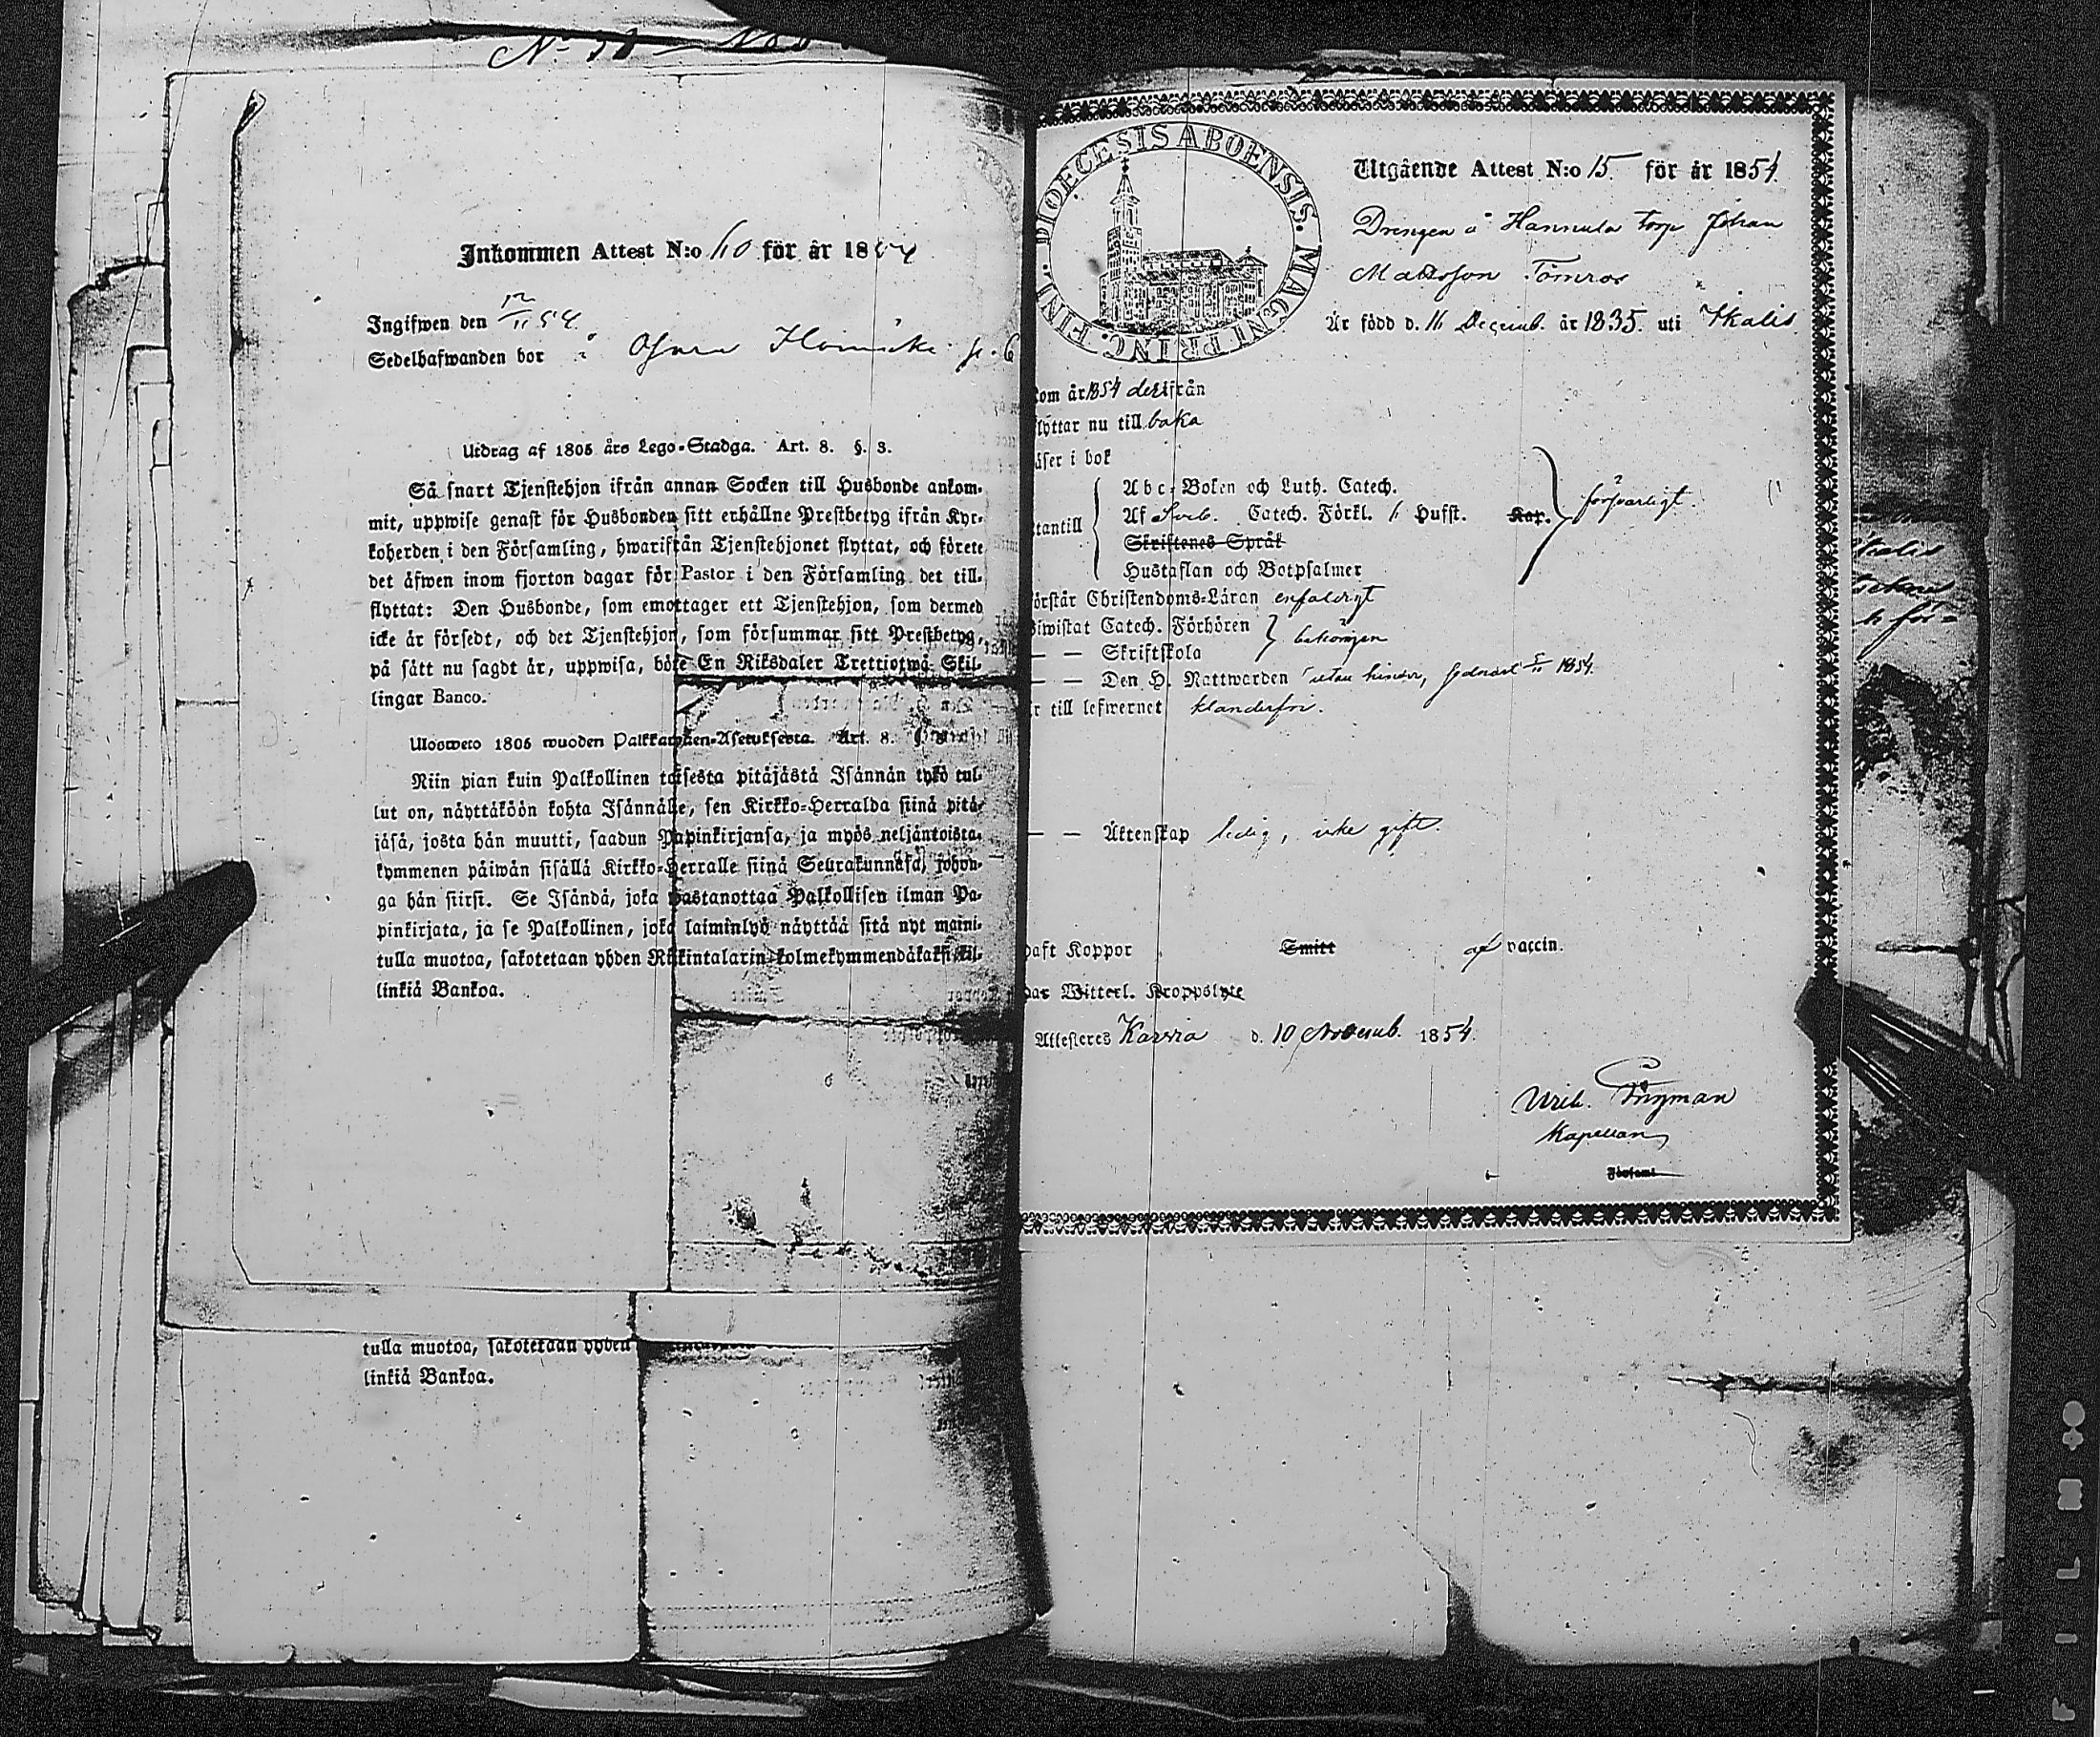 Inkommen Attest N:o 40 för år 1854
Ingifwen den 12/11 54.
Sedelhafwanden bor i
Utdrag af 1805 års Lego-Stadga. Art. 8. §. 3.
Så snart Tjenstehjon ifrån annan Socken till Husbonde ankom-
mit, uppwise genast för Husbonden sitt erhållne Prestbetyg ifrån Kyr-
koherden i den Församling, hwarifrån Tjenstehjonet flyttat, och förete
det äfwen inom fjorton dagar för Pastor i den Församling det till-
flyttat: Den Husbonde, som emottager ett Tjenstehjon, som dermed
icke är försedt, och det Tjenstehjon, som försummar sitt Prestbetyg,
på sätt nu sagdt är, uppwisa, böte En Riksdaler Trettiotwå Skil-
lingar Banco.
Ulosweto 1805 wuoden Palkkawäen-Asetuksesta. Art. 8.
Niin pian kuin Palkollinen toisesta pitäjästä Isännän tykö tul-
lut on, näyttäköön kohta Isännälle, sen Kirkko-Herralda siinä pitä-
jäsä, josta hän muutti, saadun Papinkirjansa, ja myös neljäntoista-
kymmenen päiwän sisällä Kirkko-Herralle siinä Seurakunnasa, johon-
ga hän siirsi. Se Isändä, joka wastanottaa Palkollisen ilman Pa-
pinkirjata, ja se Palkollinen, joka laiminlyö näyttää sitä nyt maini-
tulla muotoa, sakotetaan yhden Riikintalarin kolmekymmendäkaksi kil-
linkiä Bankoa.
tulla muotoa, sakotetaan yhden
linkiä Bankoa.
DIOECESIS ABOENSIS. MAGNI PRINC. FINL.
Utgående Attest N:o 15. för år 1854.
Drengen å Hannula torp Johan
Mattsson Tömros
Är född d. 11 Decemb. år 1835. uti Ikalis.
kom år 1854 derifrån
flyttar nu till baka
läser i bok
utantill
Abc-Boken och Luth. Catech.
Af Sveb. Catech. Förkl. Husst. Kat. försvarligt.
Skriftenes Språk
Hustaflan och Botpsalmer
förstår Christendoms-Läran enfaldigt
Biwistat Catech. Förhören
— — Skriftskola
— — Den H. Nattwarden utan hinder, sednast 5/11 1854.
är till lefwernet klanderfri.
— — Äktenskap ledig, icke gift.
haft Koppor Smitt af vaccin.
har Witterl. Kroppslyte
Attesteres Karvia d. 10 Novemb. 1854.
Kapellan
Församl.
FILM